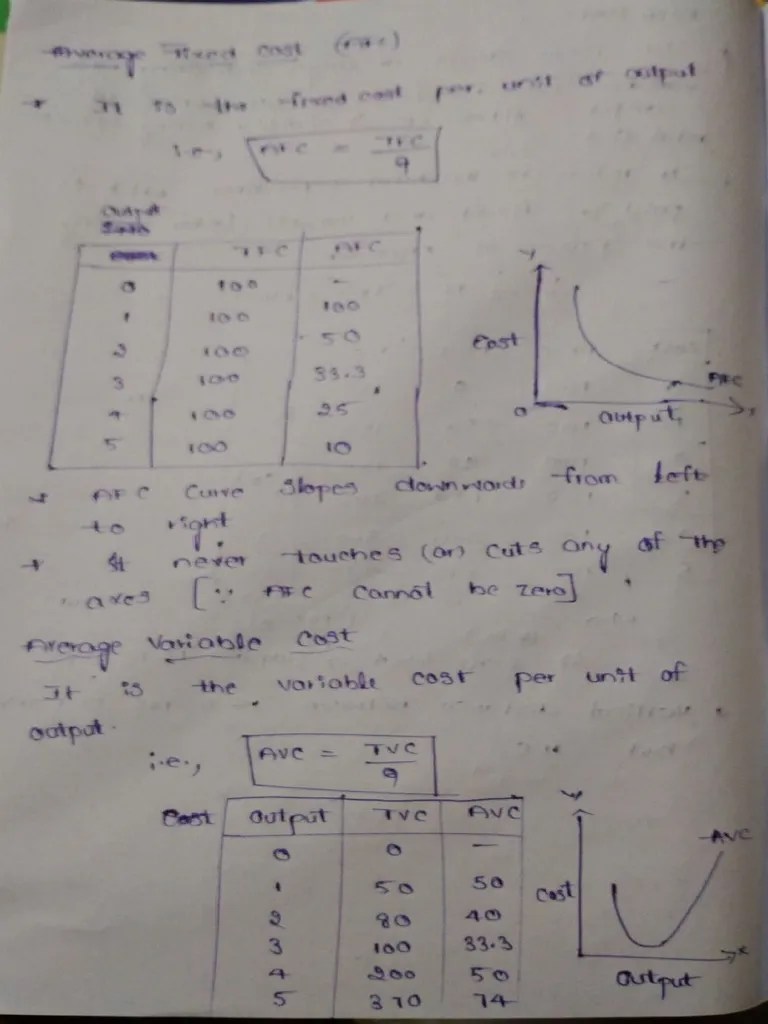 Average Fixed Cost (AFC)
* It is the fixed cost per unit of output
i.e., AFC = TFC / q
Output
TFC AFC
0 100 -
1 100 100
2 100 50
3 100 33.3
4 100 25
5 100 10
Y
Cost
AFC
0 output x
* AFC curve slopes downwards from left
to right
* It never touches (or) cuts any of the
axes [∵ AFC cannot be zero]
Average Variable Cost
It is the variable cost per unit of
output.
i.e., AVC = TVC / q
Cost Output TVC AVC
0 0 -
1 50 50
2 80 40
3 100 33.3
4 200 50
5 370 74
Y
AVC
Cost
x
Output